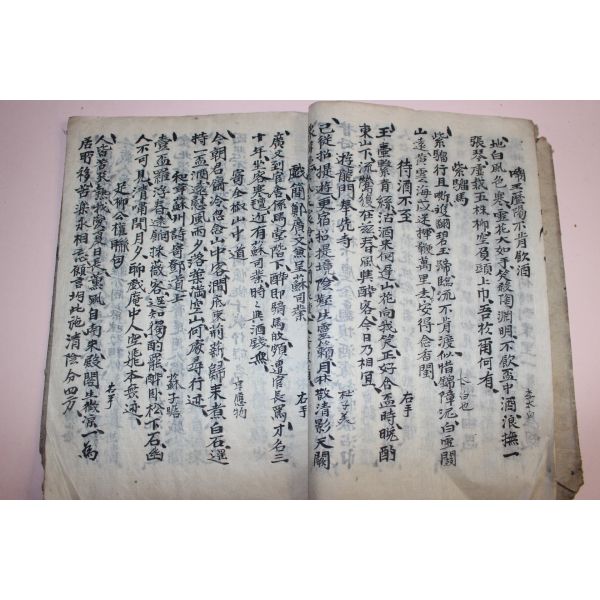 嘲王歷陽不肯飲酒 李太白
地白風色寒雪花大如手笑殺陶淵明不飲盃中酒浪撫一
張琴虛栽五株柳空負頭上巾吾於爾何有
紫騮馬
紫騮行且嘶雙翻碧玉蹄臨流不肯渡似惜錦障泥白雪關
山遠黃雲海戍迷揮鞭萬里去安得念香閨
待酒不至 右手
玉壺繫青絲沽酒來何遲山花向我笑正好含盃時晚酌
東山下流鶯復在玆春風與醉客今日乃相宜
遊龍門奉先寺 杜子美
已從招提遊更宿招提境陰壑生靈籟月林散清影天闕
戱簡鄭廣文兼呈蘇司業
廣文到官舍係馬堂階下醉即騎馬歸頗遭官長罵才名三
十年坐客寒氈近有蘇司業時時與酒錢
寄全椒山中道 韋應物
今朝郡齋冷忽念山中客澗底束荊薪歸來煮白石遙
持一盃酒遠慰風雨夕落葉滿空山何處尋行迹
和韋蘇州詩寄鄧道士 蘇子瞻
壹盃羅浮春遠餉採薇客遙知獨酌罷醉臥松下石幽
人不可見清嘯聞月夕聊戱庵中人空飛本無迹
足柳公權聯句 右手
人皆苦炎熱我愛夏日長薰風自南來殿閣生微涼一爲
居所移苦樂永相忘願言均此施清陰分四方